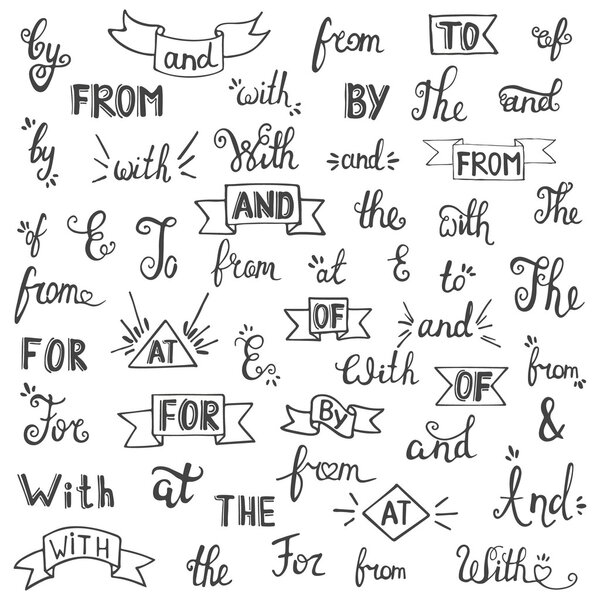 by and from TO of
FROM with BY The and
by with With and FROM
AND the with The
of & To from at & to The
from OF and
FOR AT & With OF from
For FOR By and &
from
With at THE AT And
WiTH the For from With